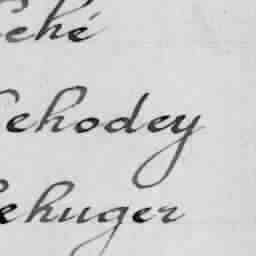 ehé
ehodey
ehuger